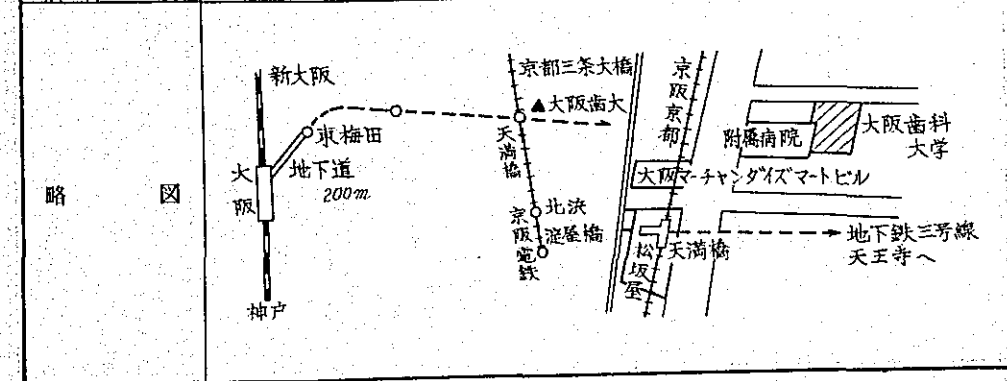 略 図
新大阪
東梅田
地下道
200m
大阪
神戸
京都三条大橋
▲大阪歯大
天満橋
北浜
淀屋橋
京阪電鉄
京阪京都
附属病院
大阪歯科
大学
大阪マーチャンダイズマートビル
松坂屋
天満橋
地下鉄三号線
天王寺へ